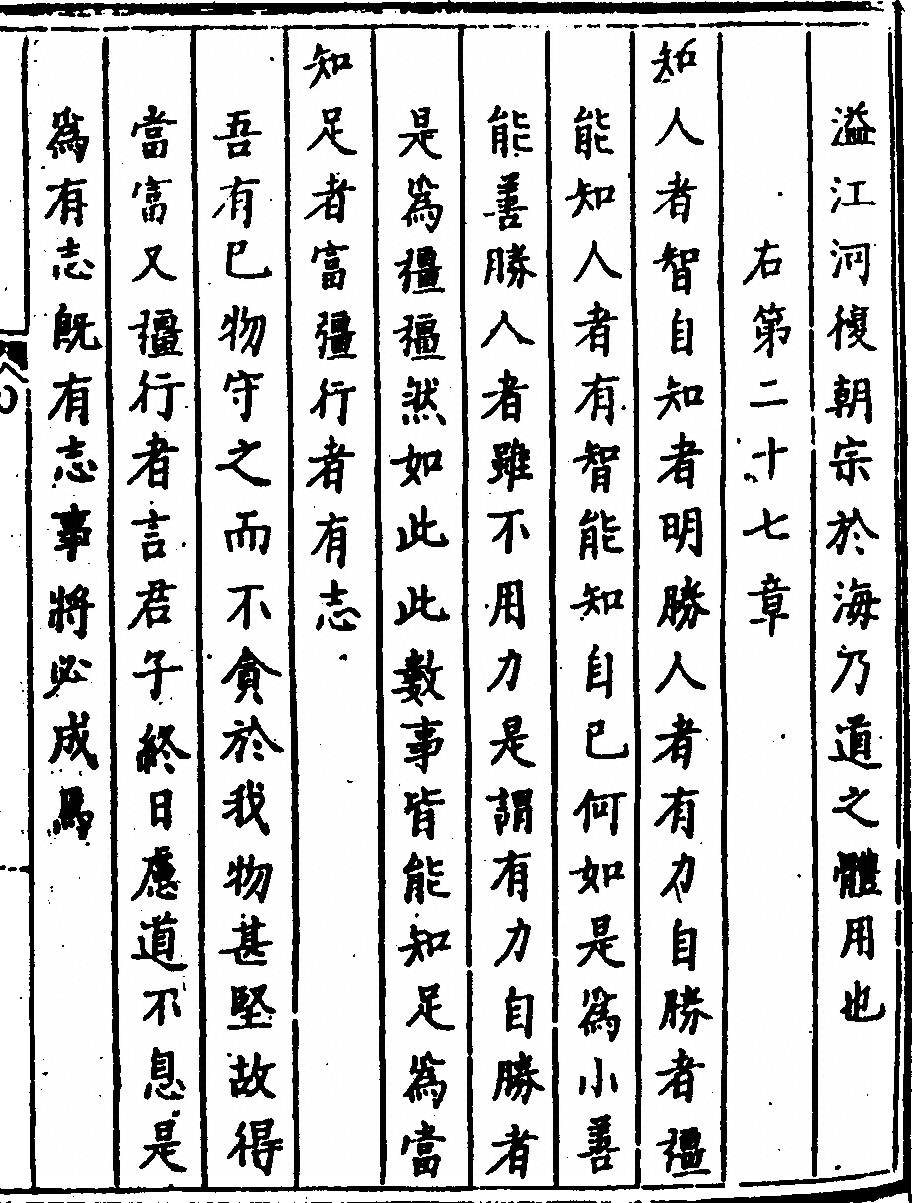 溢江河復朝宗於海乃道之體用也
右第二十七章
知人者智自知者明勝人者有力自勝者彊
能知人者有智能知自已何如是為小善
能善勝人者雖不用力是謂有力自勝者
是為彊彊然如此此數事皆能知足為當
知足者富彊行者有志
吾有已物守之而不貪於我物甚堅故得
當富又彊行者言君子終日應道不息是
為有志既有志事將必成焉